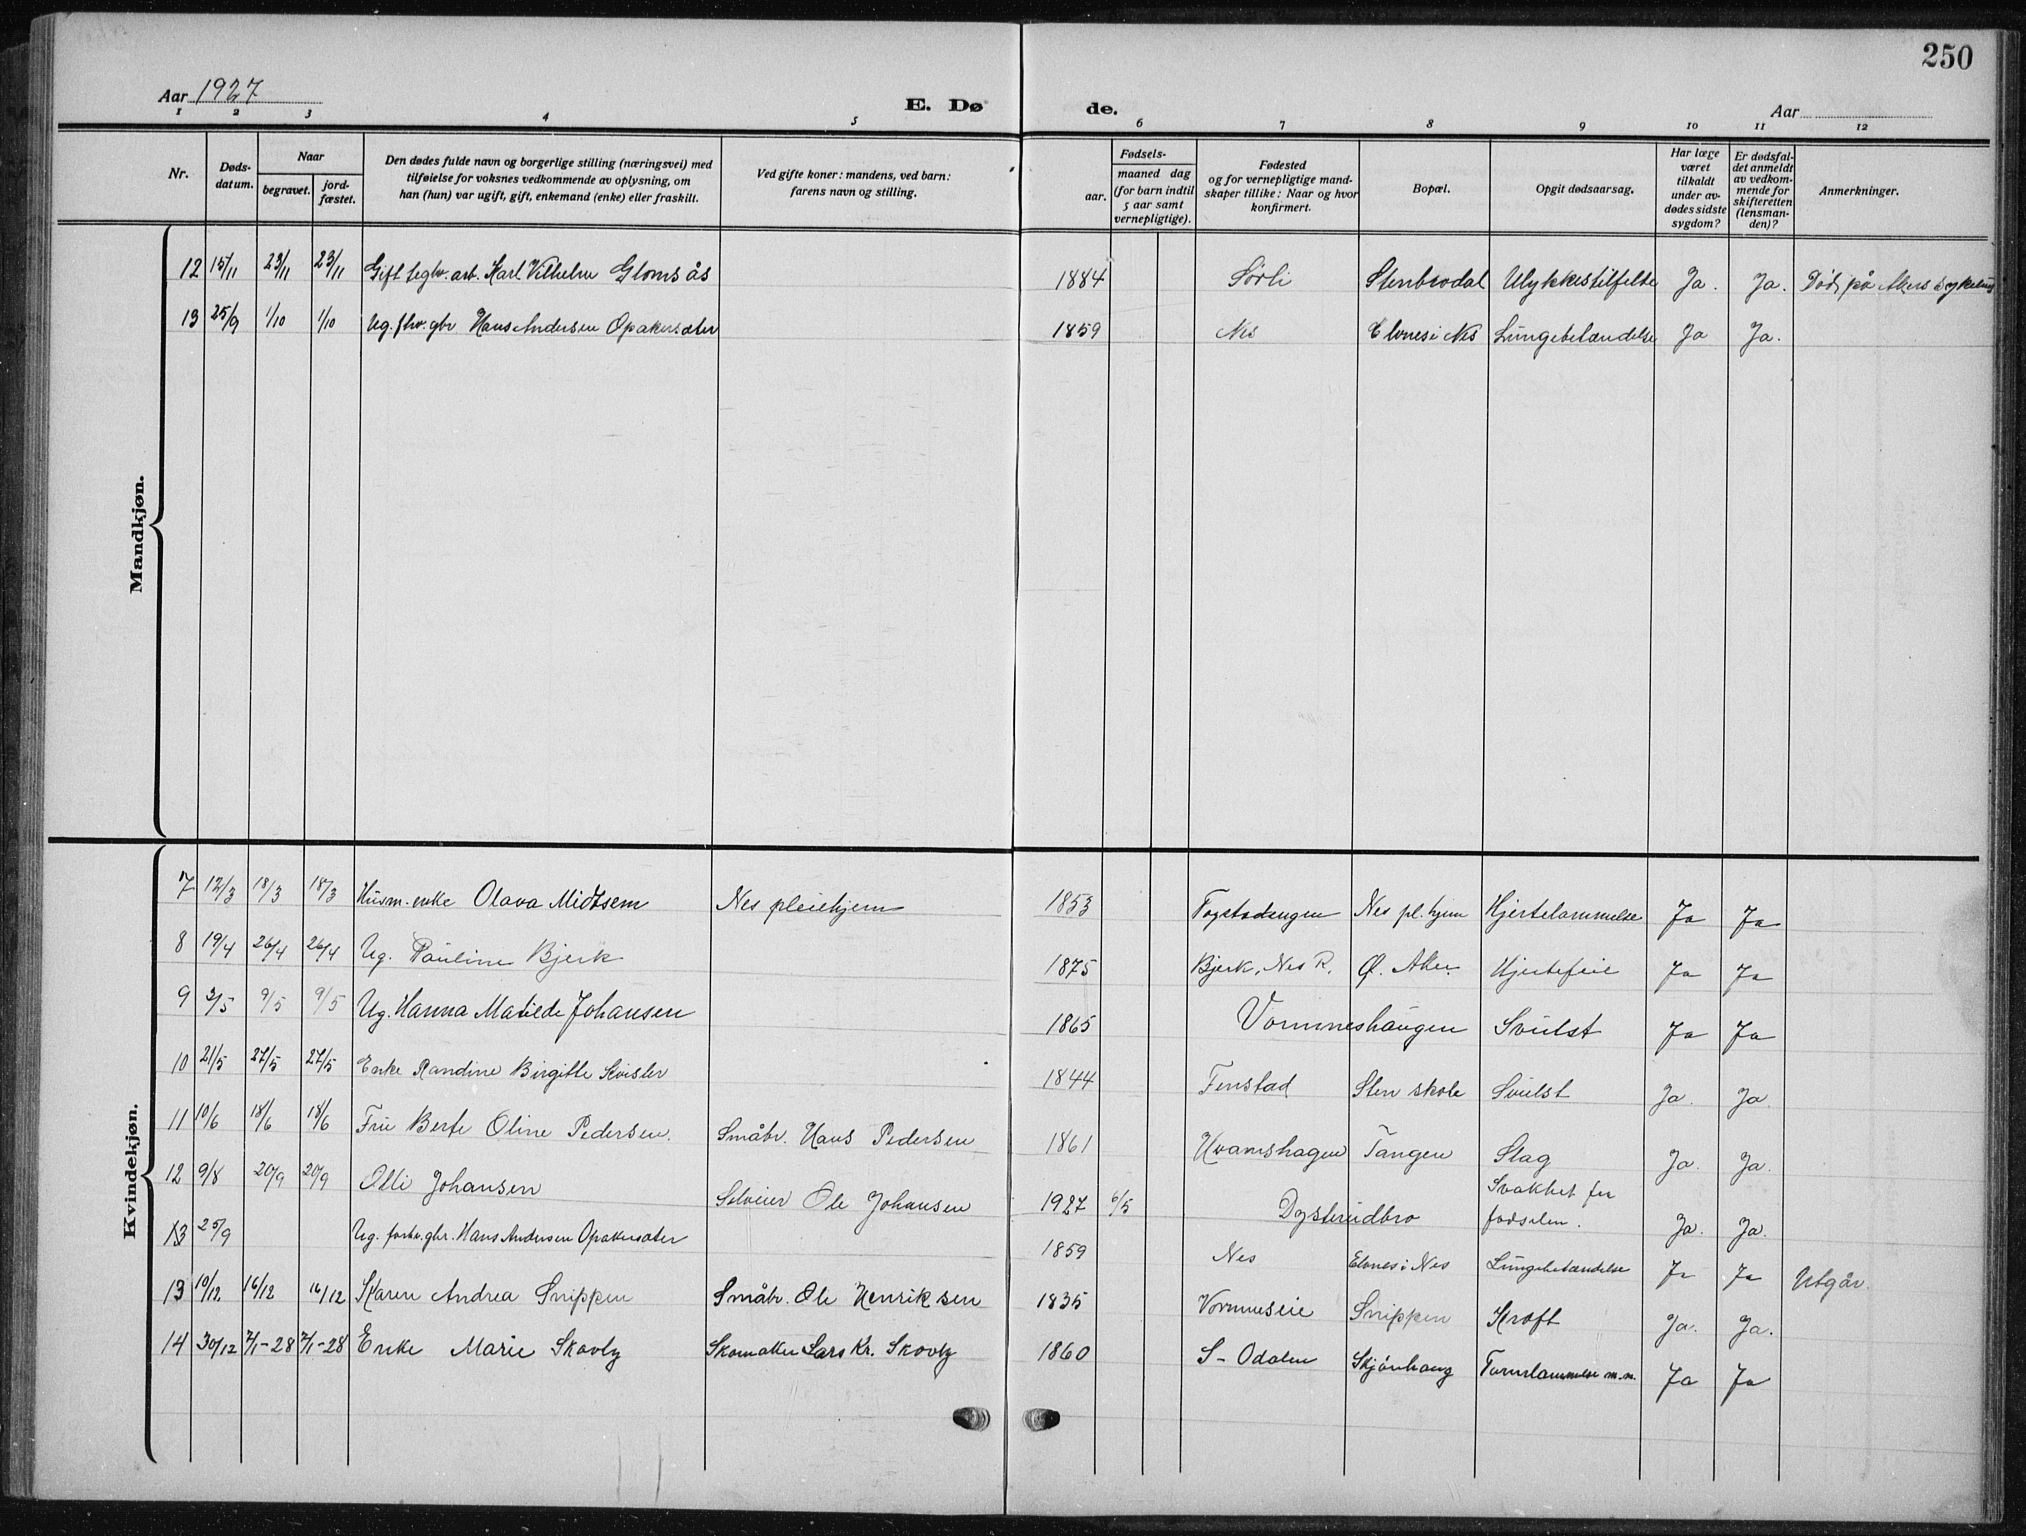 250
Aar 1927
E. Dø
de.
Aar
1 2 3 4 5 6 7 8 9 10 11 12
Nr.
Døds-
datum.
Naar
begravet.
jord-
fæstet.
Den dødes fulde navn og borgerlige stilling (næringsvei) med
tilføielse for voksnes vedkommende av oplysning, om
han (hun) var ugift, gift, enkemand (enke) eller fraskilt.
Ved gifte koner: mandens, ved barn:
farens navn og stilling.
Fødsels-
aar.
maaned dag
(for barn indtil
5 aar samt
vernepligtige).
Fødested
og for vernepligtige mand-
skaper tillike: Naar og hvor
konfirmert.
Bopæl.
Opgit dødsaarsag.
Har læge
været
tilkaldt
under av-
dødes sidste
sygdom?
Er dødsfal-
det anmeldt
av vedkom-
mende for
skifteretten
(lensman-
den)?
Anmerkninger.
Mandkjøn.
12 15/11 23/11 23/11 Gift teglv. arb. Karl Vilhelm Glomsås 1884 Sørli Stenbrodal Ulykkestilfelde Ja. Ja. Død på Akers sykehus
13 25/9 1/10 1/10 Ug. fhv. gbr Hans Andersen Opakersæter 1859 Nes Elvnes i Nes Lungebetændelse Ja Ja.
Kvindekjøn.
7 12/3 18/3 18/3 Husm. enke Olava Midtsem Nes pleiehjem 1853 Fogstadengen Nes pl. hjem Hjertelammelse Ja Ja
8 19/4 26/4 26/4 Ug. Pauline Bjerk 1875 Bjerk, Nes R. Ø. Aker. Hjertefeil Ja Ja
9 3/5 9/5 9/5 Ug. Hanna Matilde Johansen 1865 Vormneshaugen Svulst Ja Ja
10 21/5 27/5 27/5 Enke Randine Birgitte Kvisler 1844 Fenstad Sten skole Svulst Ja. Ja.
11 10/6 18/6 18/6 Fru Berte Oline Pedersen. Småbr. Hans Pedersen 1861 Hvamshagen Tangen Slag Ja. Ja.
12 9/8 20/9 20/9 Olli Johansen Selveier Ole Johansen 1927 6/5 Dysterudbro Svakhet fra
fødselen. Ja. Ja.
13 25/9 Ug. forhv. gbr. Hans Andersen Opakersæter 1859 Nes Elvnes i Nes Lungebetændelse Ja Ja Utgår.
13 10/12 16/12 16/12 Karen Andrea Snippen Småbr. Ole Henriksen 1835 Vormneseie Snippen Kræft Ja. Ja.
14 30/12 7/1-28 7/1-28 Enke Marie Skovly Skomaker Lars Kr. Skovly 1860 S-Odalen Skjønhaug Tarmlammelse m.m. Ja Ja